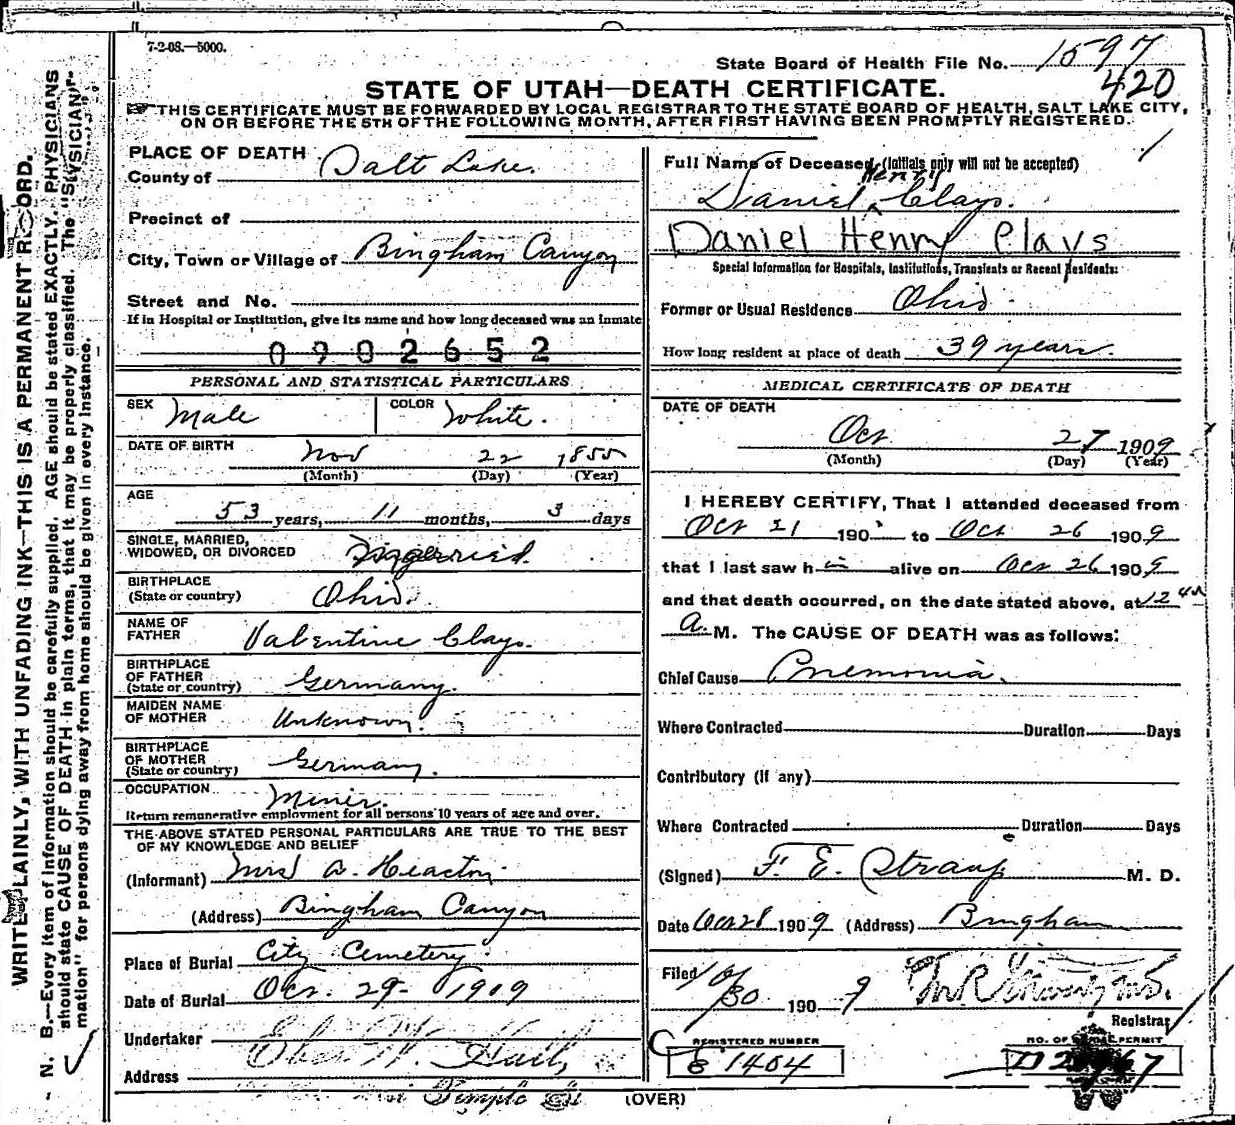 7-2-08.—5000.
State Board of Health File No. 1597
420
STATE OF UTAH—DEATH CERTIFICATE.
THIS CERTIFICATE MUST BE FORWARDED BY LOCAL REGISTRAR TO THE STATE BOARD OF HEALTH, SALT LAKE CITY,
ON OR BEFORE THE 5TH OF THE FOLLOWING MONTH, AFTER FIRST HAVING BEEN PROMPTLY REGISTERED.
WRITE PLAINLY, WITH UNFADING INK—THIS IS A PERMANENT RECORD.
N. B.—Every item of information should be carefully supplied. AGE should be stated EXACTLY. PHYSICIANS
should state CAUSE OF DEATH in plain terms, that it may be properly classified. The "
mation" for persons dying away from home should be given in every instance.
PLACE OF DEATH
County of Salt Lake.
Precinct of
City, Town or Village of Bingham Canyon
Street and No.
If in Hospital or Institution, give its name and how long deceased was an inmate
0902652
PERSONAL AND STATISTICAL PARTICULARS
SEX Male COLOR White.
DATE OF BIRTH Nov 22 1855
(Month) (Day) (Year)
AGE
53 years, 11 months, 3 days
SINGLE, MARRIED,
WIDOWED, OR DIVORCED
BIRTHPLACE
(State or country) Ohio.
NAME OF
FATHER Valentine Clays.
BIRTHPLACE
OF FATHER
(State or country) Germany.
MAIDEN NAME
OF MOTHER Unknown.
BIRTHPLACE
OF MOTHER
(State or country) Germany.
OCCUPATION Miner.
Return remunerative employment for all persons 10 years of age and over.
THE ABOVE STATED PERSONAL PARTICULARS ARE TRUE TO THE BEST
OF MY KNOWLEDGE AND BELIEF
(Informant) Mrs A.
(Address) Bingham Canyon
Place of Burial City Cemetery.
Date of Burial Oct. 29- 1909
Undertaker Eber W. Hall,
Address
Temple St
(OVER)
Full Name of Deceased (Initials only will not be accepted)
Henry
Daniel Clays.
Daniel Henry Clays
Special Information for Hospitals, Institutions, Transients or Recent Residents:
Former or Usual Residence Ohio
How long resident at place of death 39 years.
MEDICAL CERTIFICATE OF DEATH
DATE OF DEATH
Oct 27 1909
(Month) (Day) (Year)
I HEREBY CERTIFY, That I attended deceased from
Oct 21 190 to Oct 26 1909
that I last saw h im alive on Oct 26 1909
and that death occurred, on the date stated above, at 12 45
a. M. The CAUSE OF DEATH was as follows:
Chief Cause Pnemonia.
Where Contracted Duration Days
Contributory (if any)
Where Contracted Duration Days
(Signed) F. E. Straup M. D.
Date Oct 28 1909 (Address) Bingham
Filed 10/30 1909
Registrar
REGISTERED NUMBER
C 1404
NO. OF BURIAL PERMIT